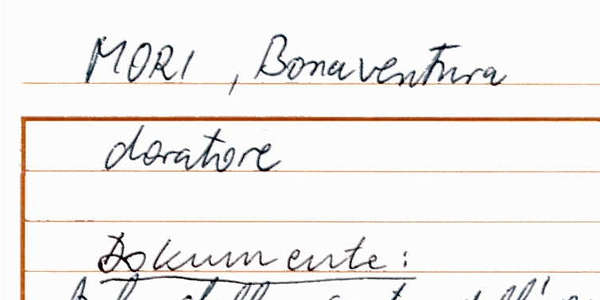 MORI, Bonaventura
doratore
Dokumente: